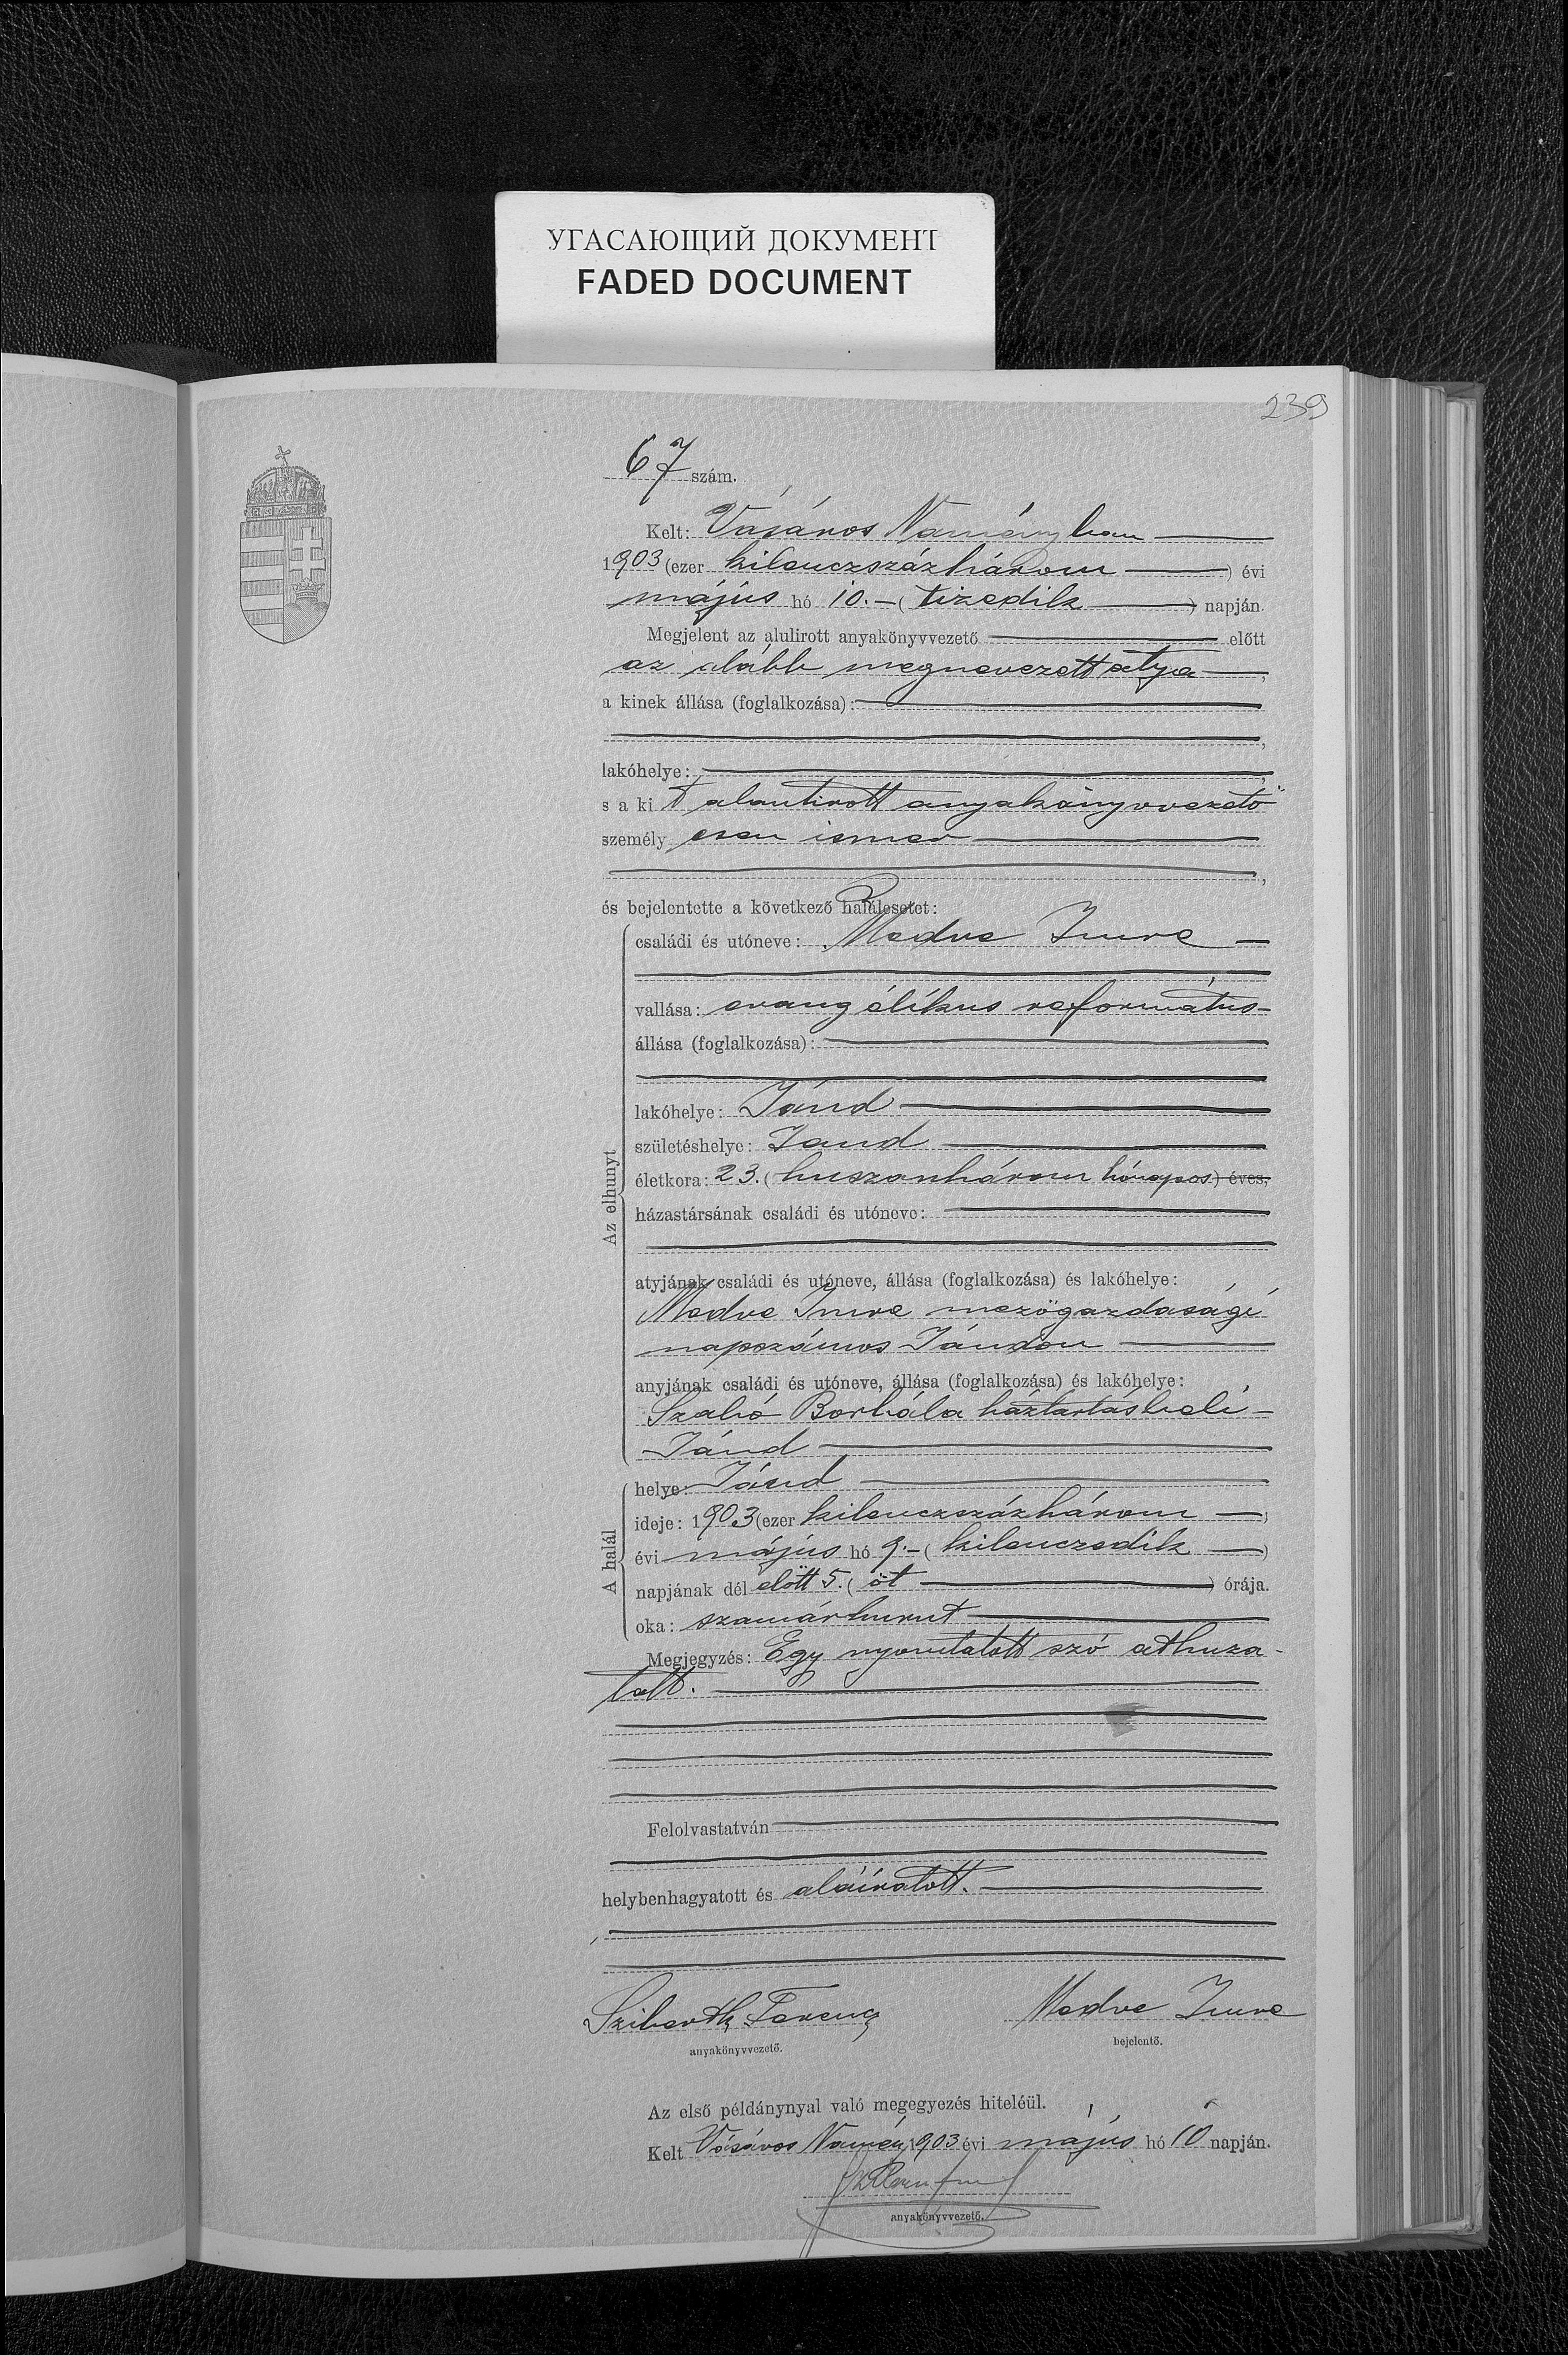 УГАСАЮЩИЙ ДОКУМЕНТ
FADED DOCUMENT
239
67 szám.
Kelt: Vásáros Naményban
1903 (ezer kilenczszázhárom) évi
május hó 10. (tizedik) napján.
Megjelent az alulirott anyakönyvvezető előtt
az alább megnevezett atya,
a kinek állása (foglalkozása):
lakóhelye:
s a kit alantirott anyakönyvvezető
személyesen ismer
és bejelentette a következő halálesetet:
Az elhunyt
családi és utóneve: Medve Imre
vallása: evangélikus református
állása (foglalkozása):
lakóhelye: Jánd
születéshelye: Jand
életkora: 23. (huszonhárom hónapos) éves,
házastársának családi és utóneve:
atyjának családi és utóneve, állása (foglalkozása) és lakóhelye:
Medve Imre mezőgazdasági
napszámos Jándon
anyjának családi és utóneve, állása (foglalkozása) és lakóhelye:
Szabó Borbála háztartásbeli
Jánd
A halál
helye: Jánd
ideje: 1903 (ezer kilenczszázhárom)
évi május hó 9. (kilenczedik)
napjának dél előtt 5. (öt) órája.
oka: szamárhurut
Megjegyzés: Egy nyomtatott szó áthuza-
tott.
Felolvastatván
helybenhagyatott és aláíratott.
Sziberth Ferencz Medve Imre
anyakönyvvezető. bejelentő.
Az első példánynyal való megegyezés hiteléül.
Kelt Vásáros Namény, 1903 évi május hó 10 napján.
anyakönyvvezető.